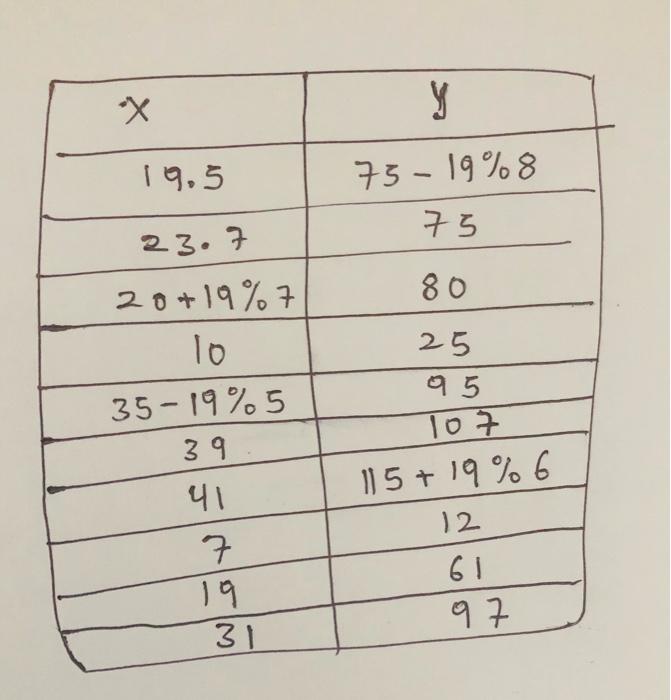 x y
19.5 75-19%8
23.7 75
20+19%7 80
10 25
35-19%5 95
39 107
41 115+19%6
7 12
19 61
31 97